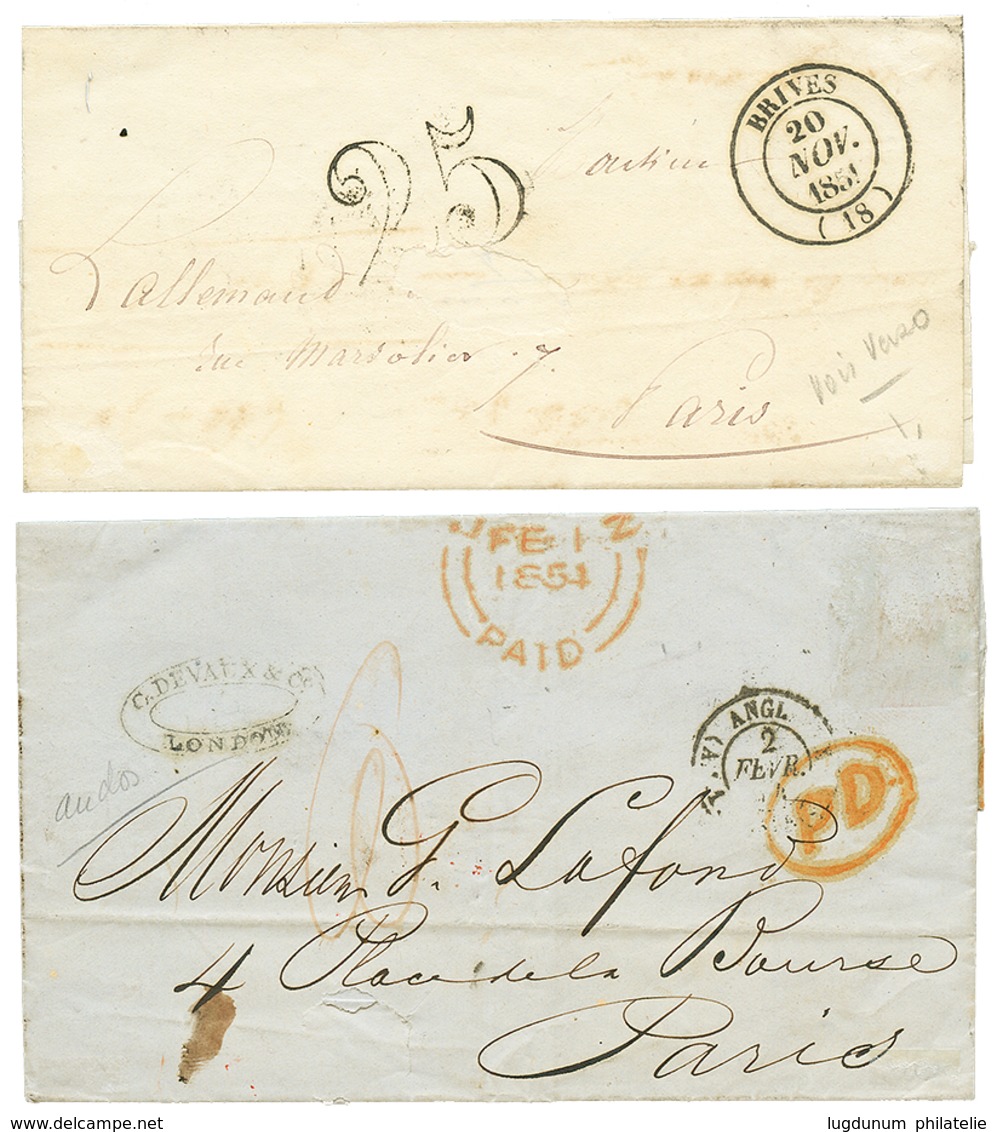 BRIVES
20
NOV.
1851
(18)
25
Lallemand
rue Marsolier 7.
Paris
Voir Verso
FE 12
1851
PAID
C. DEVAUX & Co
LONDON
ANGL.
2
FEVR.
PD
au dos
Monsieur G. Lafond
4 Place de la Bourse
Paris
www.delcampe.net
lugdunum philatelie